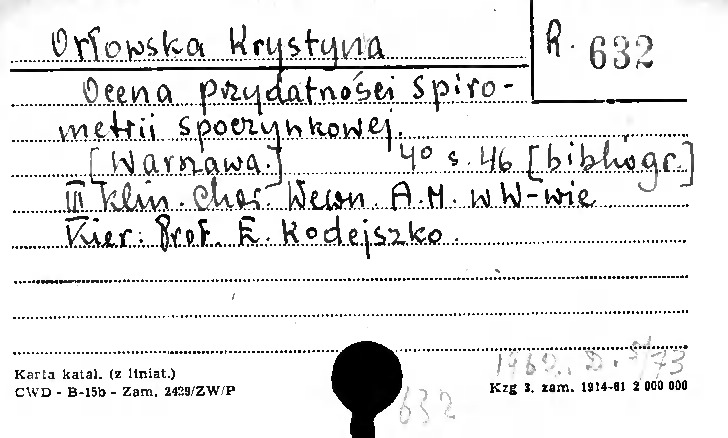 Orłowska Krystyna R. 632
Ocena przydatności spiro-
metrii spoczynkowej.
[Warszawa.] 4° s. 46 [bibliogr.]
III Klin. Chor. Wewn. A.M. w W-wie
Kier: Prof. E. Kodejszko.
1962. D. 5/73
Karta katal. (z liniat.)
CWD - B-15b - Zam. 2429/ZW/P
Kzg 3. zam. 1914-61 2 000 000
632